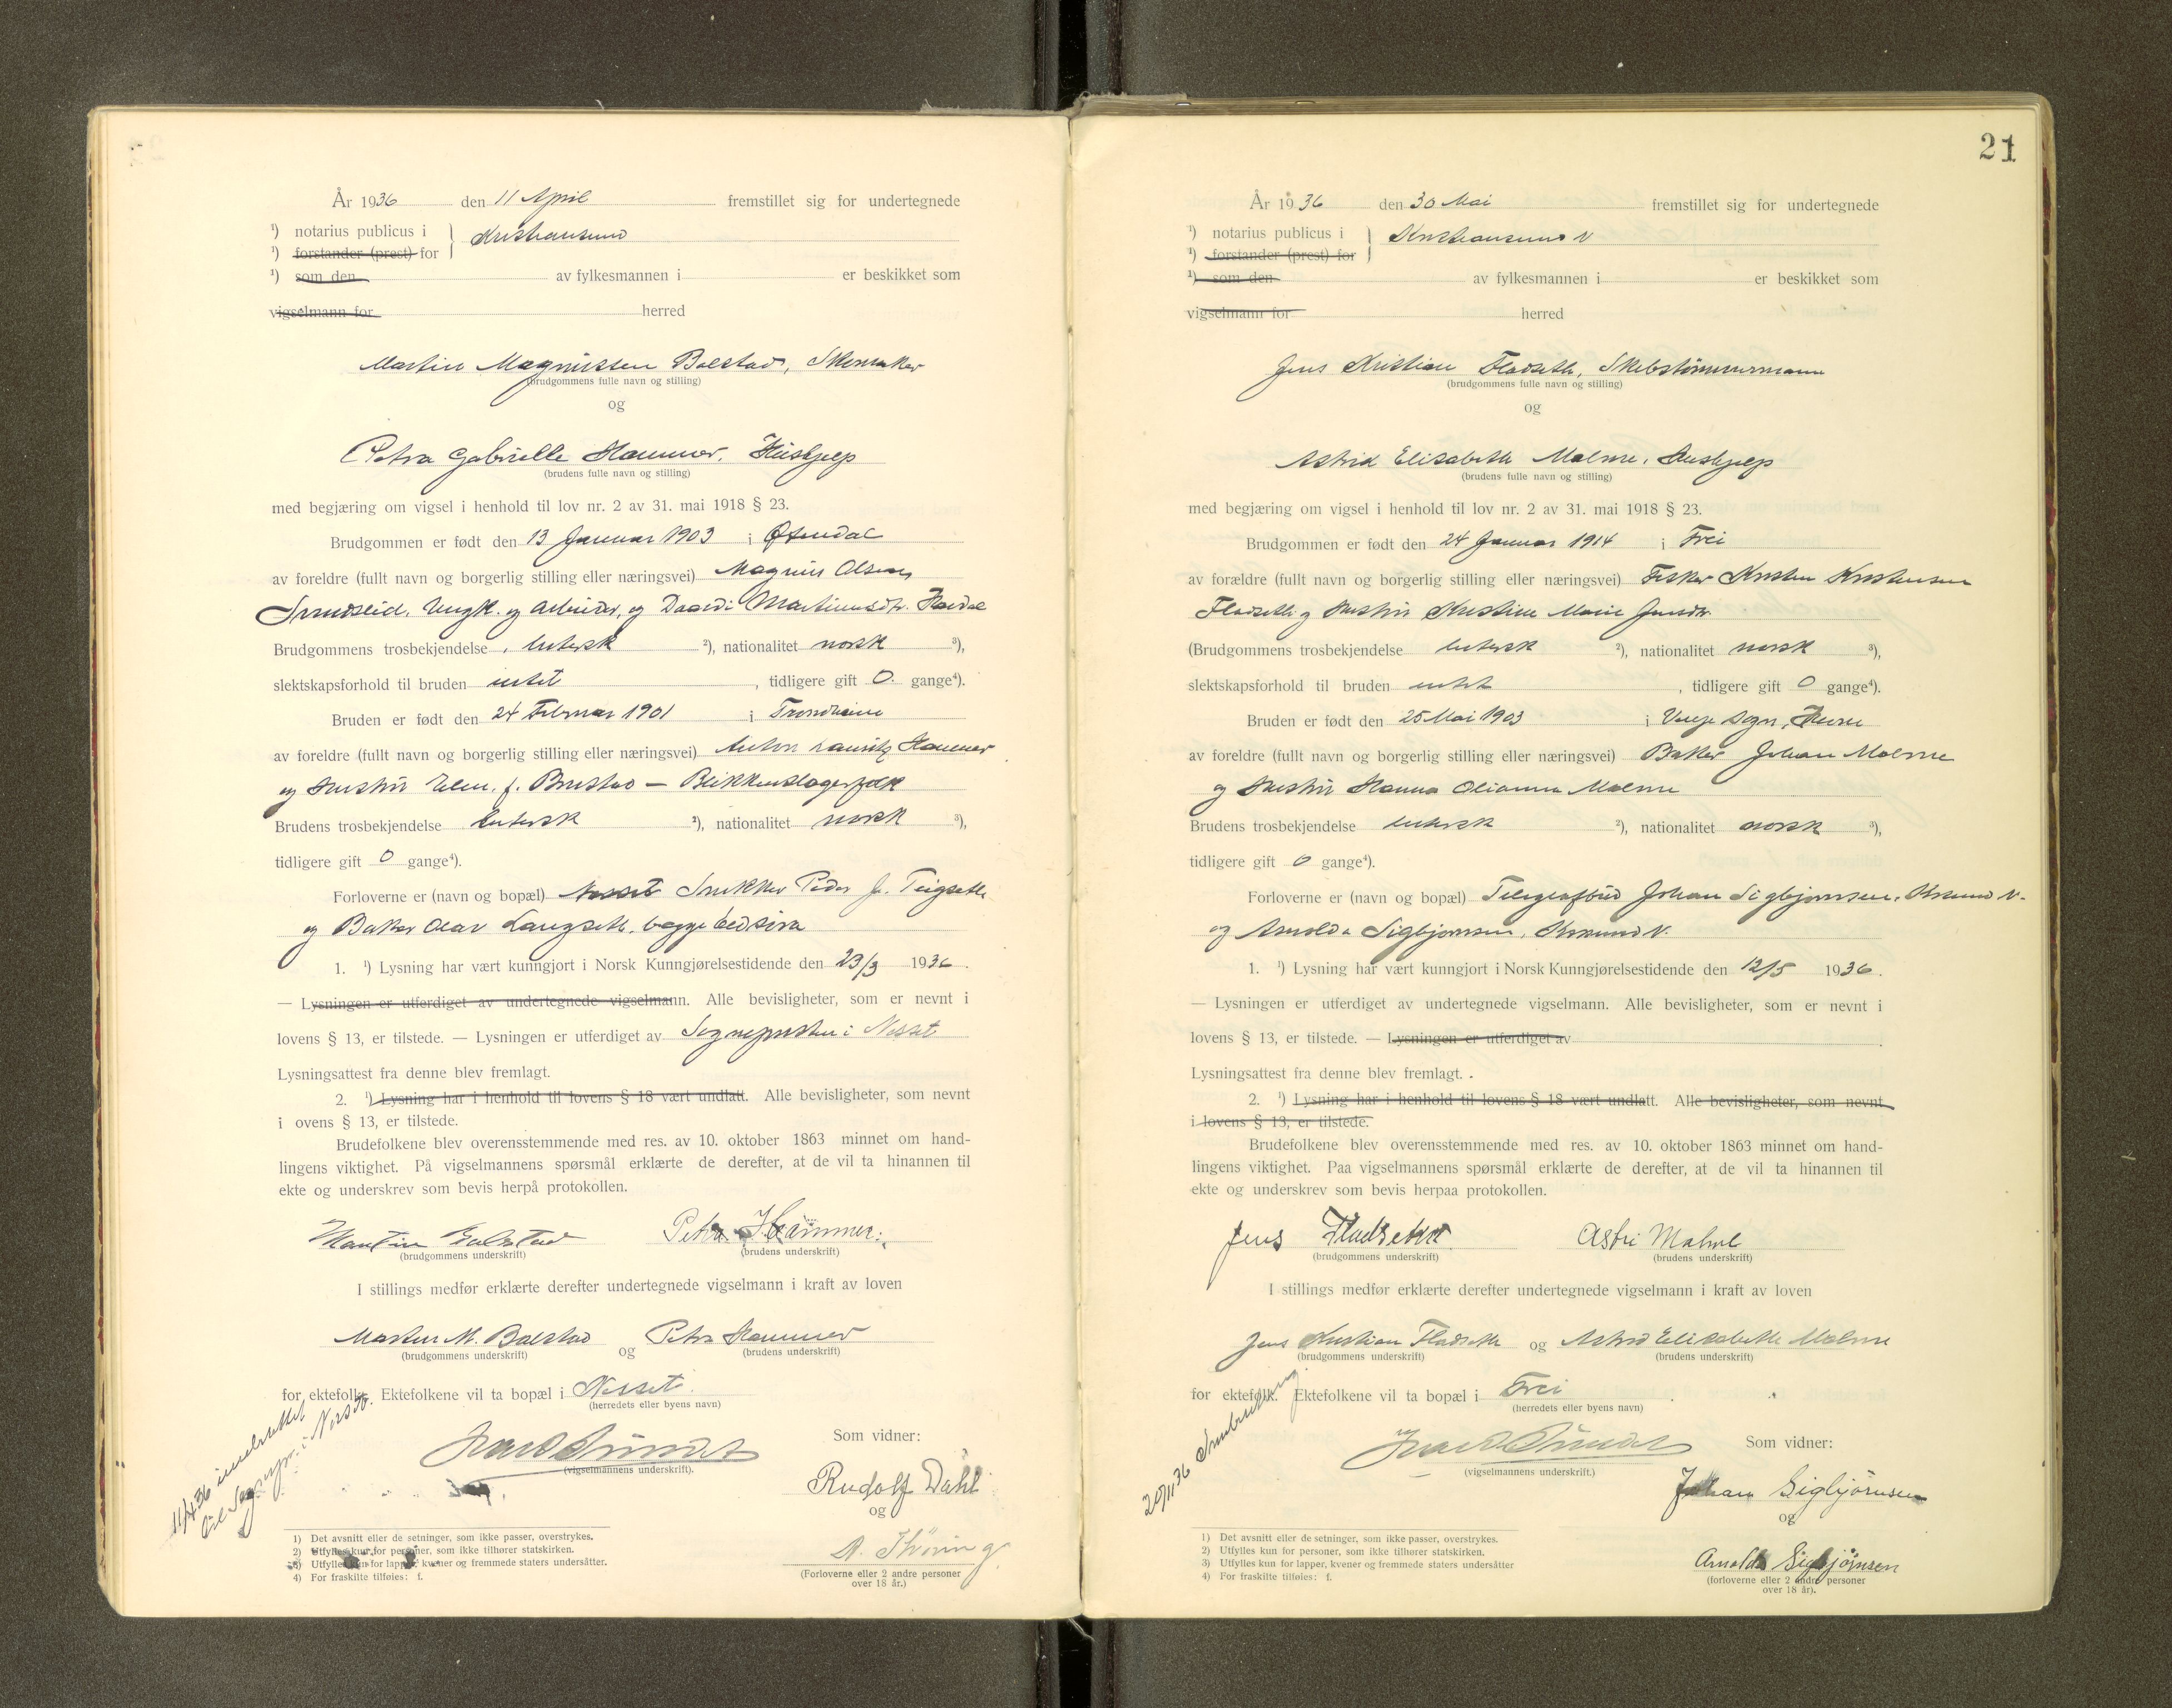 År 1936 den 11 April fremstillet sig for undertegnede
1) notarius publicus i
1) forstander (prest) for
Kristiansund
1) som den av fylkesmannen i er beskikket som
vigselmann for herred
Martin Magnussen Bolstad, Skomaker
(brudgommens fulle navn og stilling)
og
Petra Gabrielle Hammer. Hushjelp
(brudens fulle navn og stilling)
med begjæring om vigsel i henhold til lov nr. 2 av 31. mai 1918 § 23.
Brudgommen er født den 13 Januar 1903 i
av foreldre (fullt navn og borgerlig stilling eller næringsvei) Magnus Olsen
Ungk. og arbeider, og Martinusdtr.
Brudgommens trosbekjendelse luthersk 2), nationalitet norsk 3),
slektskapsforhold til bruden intet, tidligere gift 0 gange4).
Bruden er født den 24 Februar 1901 i Trondheim
av foreldre (fullt navn og borgerlig stilling eller næringsvei) Anton Lauritz Hammer
og Hustru Elen, f. Brustad — Blikkenslagerfolk
Brudens trosbekjendelse luthersk 2), nationalitet norsk 3),
tidligere gift 0 gange4).
Forloverne er (navn og bopæl) Nesset Snekker Peder J. Teigseth
og Baker Olav Langseth, begge Eidsøra
1. 1) Lysning har vært kunngjort i Norsk Kunngjørelsestidende den 23/3 1936.
— Lysningen er utferdiget av undertegnede vigselmann. Alle bevisligheter, som er nevnt i
lovens § 13, er tilstede. — Lysningen er utferdiget av Sognepresten i Nesset
Lysningsattest fra denne blev fremlagt.
2. 1) Lysning har i henhold til lovens § 18 vært undlatt. Alle bevisligheter, som nevnt
i ovens § 13, er tilstede.
Brudefolkene blev overensstemmende med res. av 10. oktober 1863 minnet om hand-
lingens viktighet. På vigselmannens spørsmål erklærte de derefter, at de vil ta hinannen til
ekte og underskrev som bevis herpå protokollen.
Martin Bolstad Petra Hammer
(brudgommens underskrift) (brudens underskrift)
I stillings medfør erklærte derefter undertegnede vigselmann i kraft av loven
Martin M. Bolstad og Petra Hammer
(brudgommens underskrift) (brudens underskrift)
for ektefolk. Ektefolkene vil ta bopæl i Nesset
(herredets eller byens navn)
11/4 36 innberettet
til Sogнepr. i Nesset.
Som vidner:
(vigselmannens underskrift).
Rudolf Dahl
og
A. Thøring
(Forloverne eller 2 andre personer
over 18 år.)
1) Det avsnitt eller de setninger, som ikke passer, overstrykes.
2) Utfylles kun for personer, som ikke tilhører statskirken.
3) Utfylles kun for lapper, kvener og fremmede staters undersåtter.
4) For fraskilte tilføies: f.
21
År 1936 den 30 Mai fremstillet sig for undertegnede
1) notarius publicus i
1) forstander (prest) for
Kristiansund N
1) som den av fylkesmannen i er beskikket som
vigselmann for herred
Jens Kristian Fladseth, Skibstømmermann
(brudgommens fulle navn og stilling)
og
Astrid Elisabeth Malme, Hushjelp
(brudens fulle navn og stilling)
med begjæring om vigsel i henhold til lov nr. 2 av 31. mai 1918 § 23.
Brudgommen er født den 24 Januar 1914 i Frei
av forældre (fullt navn og borgerlig stilling eller næringsvei) Fisker Kristen Kristensen
Fladseth og Hustru Kristine Marie Jensdtr.
(Brudgommens trosbekjendelse luthersk 2), nationalitet norsk 3),
slektskapsforhold til bruden intet, tidligere gift 0 gange4).
Bruden er født den 25 Mai 1903 i Veøy sogn,
av foreldre (fullt navn og borgerlig stilling eller næringsvei) Baker Johan Malme
og Hustru Hanna Olianna Malme
Brudens trosbekjendelse luthersk 2), nationalitet norsk 3),
tidligere gift 0 gange4).
Forloverne er (navn og bopæl) Telegrafbud Johan Sigbjørnsen, Krsund N.
og Arnolda Sigbjørnsen, Krsund N.
1. 1) Lysning har vært kunngjort i Norsk Kunngjørelsestidende den 12/5 1936.
— Lysningen er utferdiget av undertegnede vigselmann. Alle bevisligheter, som er nevnt i
lovens § 13, er tilstede. — Lysningen er utferdiget av
Lysningsattest fra denne blev fremlagt.
2. 1) Lysning har i henhold til lovens § 18 vært undlatt. Alle bevisligheter, som nevnt
i lovens § 13, er tilstede.
Brudefolkene blev overensstemmende med res. av 10. oktober 1863 minnet om hand-
lingens viktighet. Paa vigselmannens spørsmål erklærte de derefter, at de vil ta hinannen til
ekte og underskrev som bevis herpaa protokollen.
Jens Fladseth Astri Malme
(brudgommens underskrift) (brudens underskrift)
I stillings medfør erklærte derefter undertegnede vigselmann i kraft av loven
Jens Kristian Fladseth og Astrid Elisabeth Malme
(brudgommens underskrift) (brudens underskrift)
for ektefolk. Ektefolkene vil ta bopæl i Frei
(herredets eller byens navn)
20/11 36 Innberetning
Som vidner:
(vigselmannens underskrift.)
Johan Sigbjörnsen
og
Arnolda Sigbjörnsen
(forloverne eller 2 andre personer
over 18 år).
1) Det avsnitt eller de setninger, som ikke passer, overstrykes.
2) Utfylles kun for personer, som ikke tilhører statskirken.
3) Utfylles kun for lapper, kvener og fremmede staters undersåtter
4) For fraskilte tilføies: f.